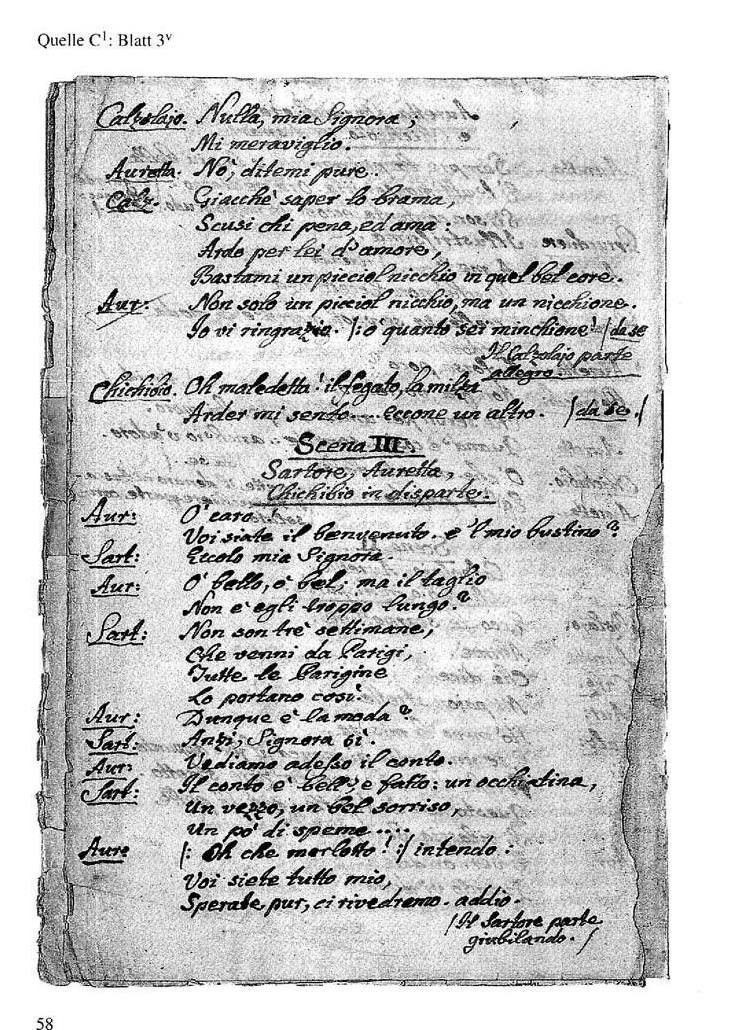 Quelle C¹: Blatt 3ᵛ
Calzolajo. Nulla, mia Signora;
Mi meraviglio.
Auretta. Nò, ditemi pure.
Calz. Giacchè saper lo brama,
Scusi chi pena, ed ama:
Ardo per lei d'amore,
Bastami un picciol nicchio in quel bel core.
Aur: Non solo un picciol nicchio, ma un nicchione.
Io vi ringrazio. |: o quanto sei minchione! |da se
Il Calzolajo parte
allegro.
Chichibio. Oh maledetta! il fegato, la milza
Arder mi sento.... eccone un altro. |da se.|
Scena III.
Sartore, Auretta,
Chichibio in disparte.
Aur: O' caro
Voi siate il benvenuto. e 'l mio bustino?
Sart: Eccolo mia Signora.
Aur: O' bello, o' bel; ma il taglio
Non e' egli troppo lungo?
Sart: Non son trè settimane,
Che venni da Parigi,
Tutte le Parigine
Lo portano così.
Aur: Dunque è la moda?
Sart: Anzi, Signora sì.
Aur: Vediamo adesso il conto.
Sart: Il conto è bell'e fatto: un occhiatina,
Un vezzo, un bel sorriso,
Un pò di speme.....
Aure |: Oh che merlotto! :| intendo:
Voi siete tutto mio,
Sperate pur, ci rivedremo. addio.
|Il Sartore parte
giubilando.|
58